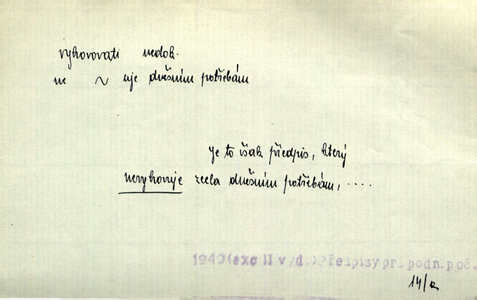 vyhovovati nedok.
ne ~ uje dnešním potřebám
Je to však předpis, který
nevyhovuje zcela dnešním potřebám, ....
1940 (exc II v/d.) Předpisy pr. podn. poč.
14/a